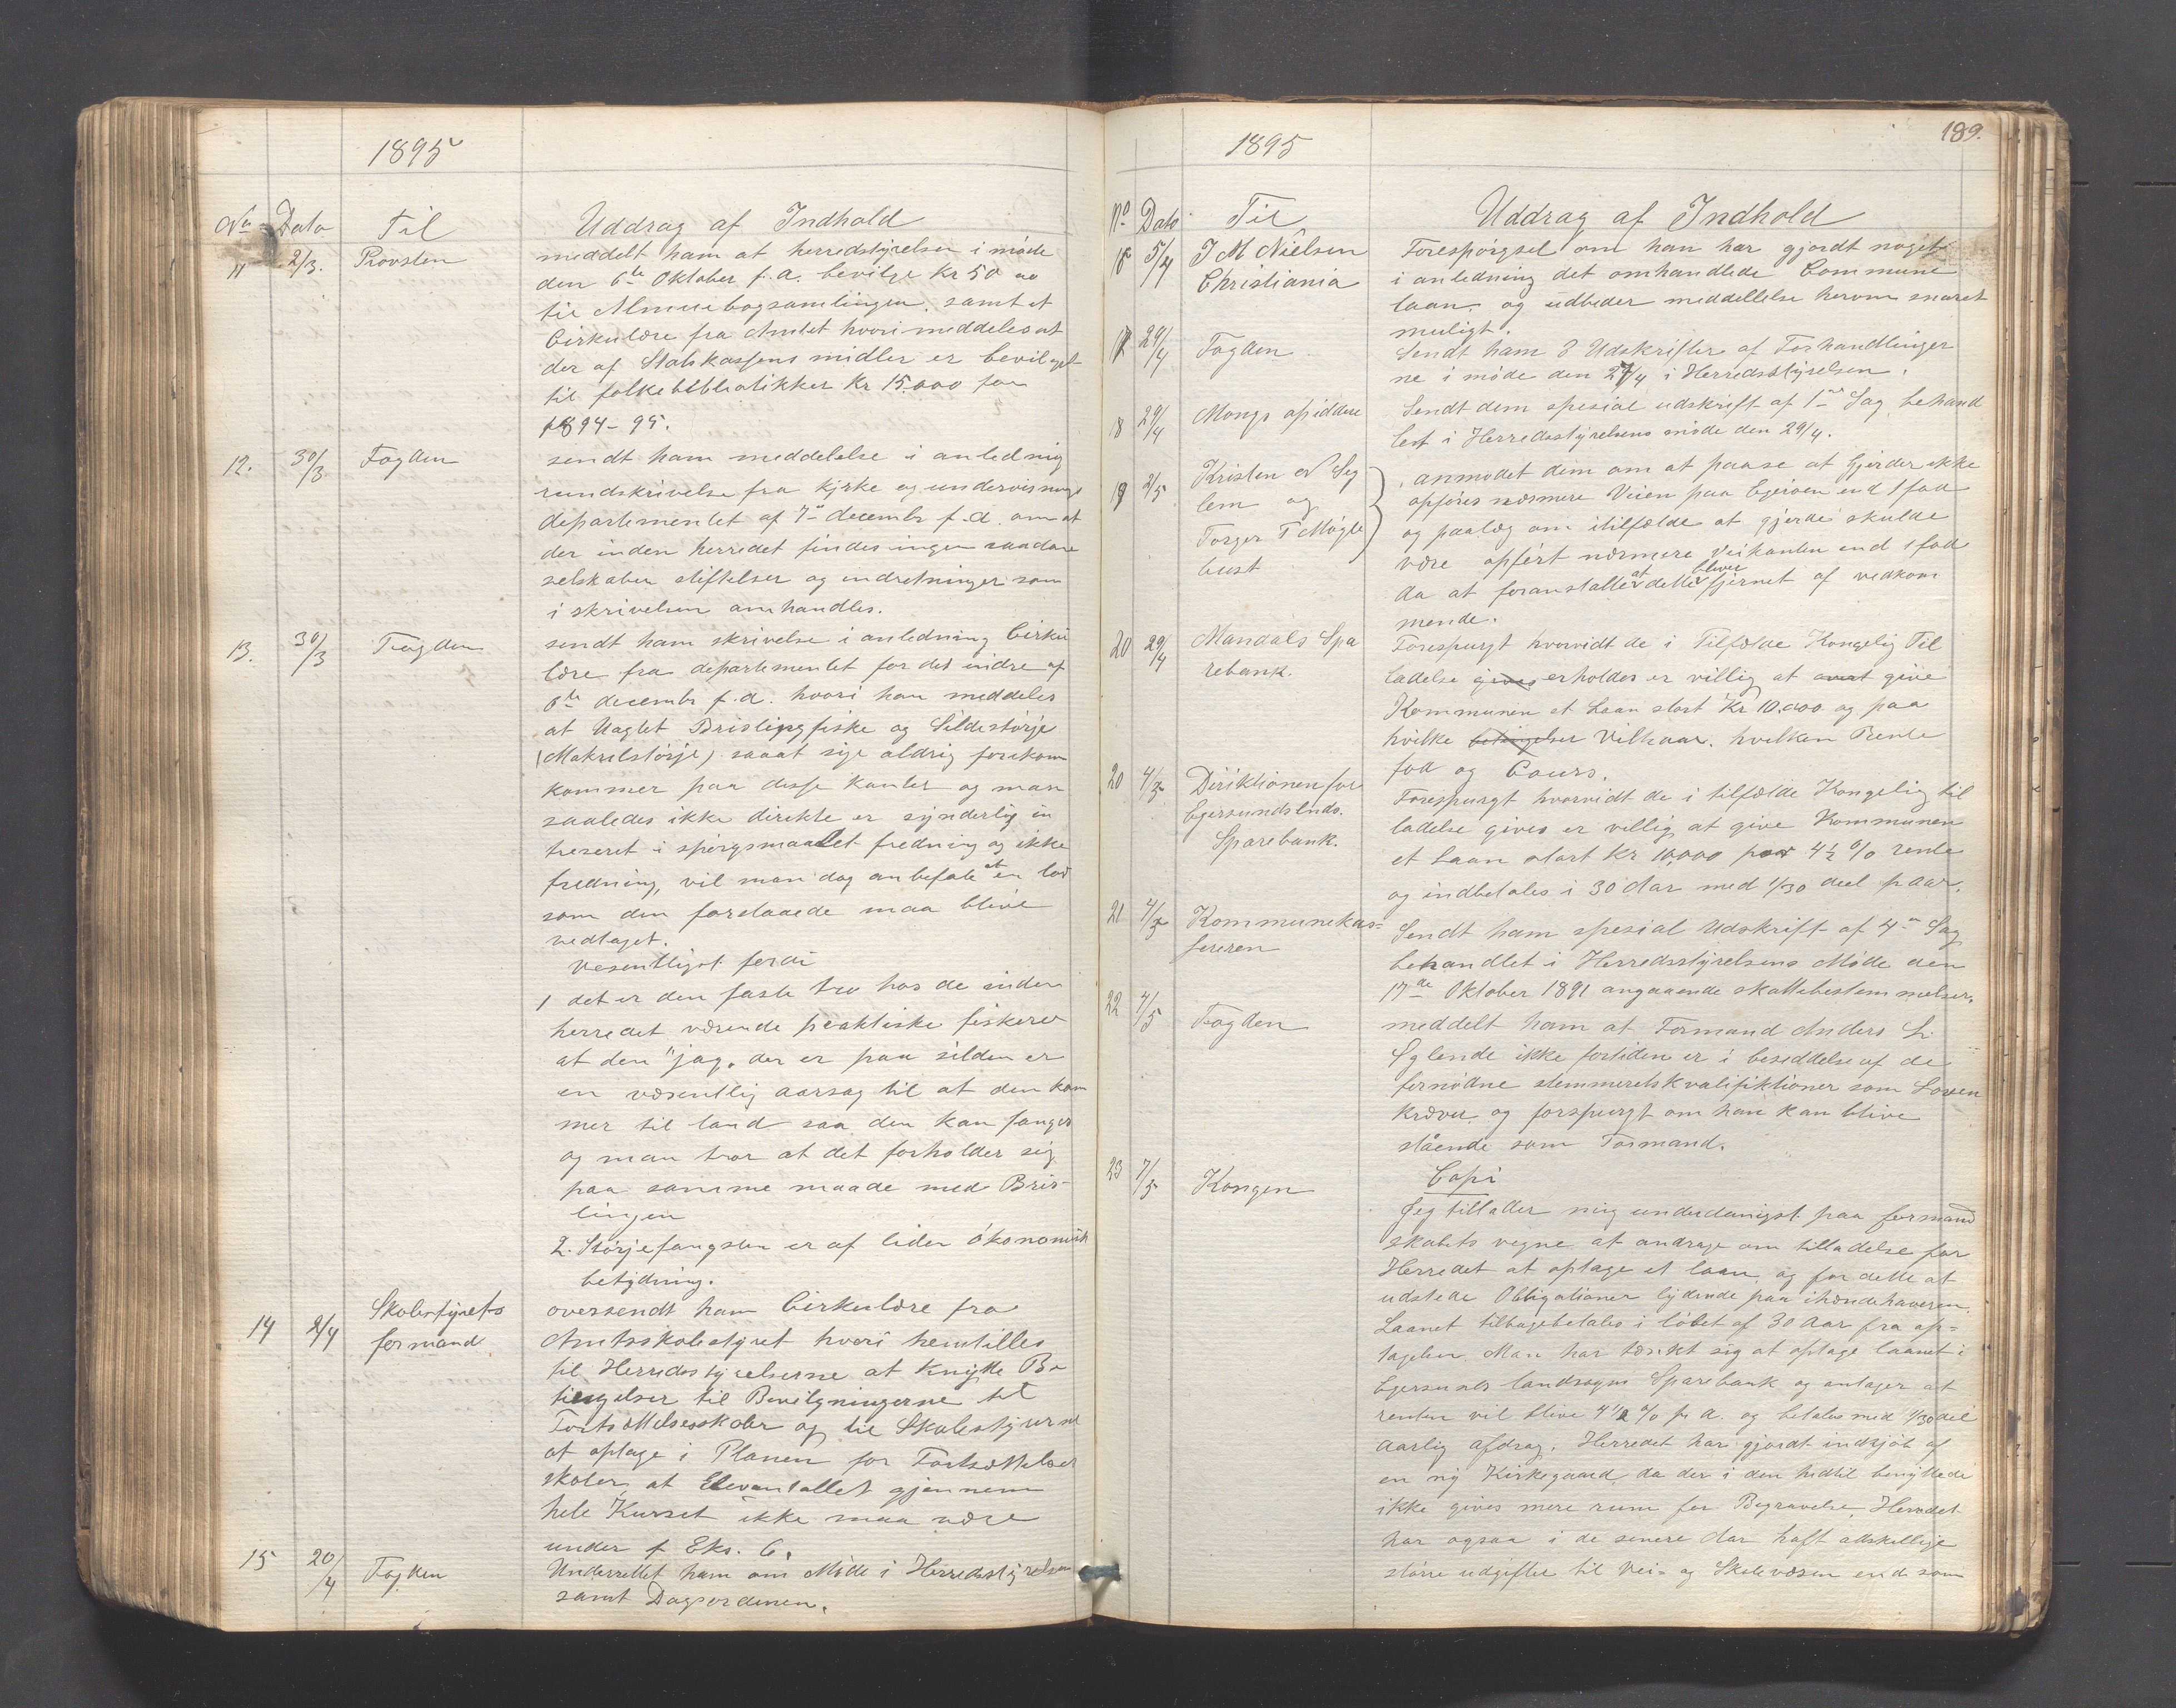 1895
No Dato Til Uddrag af Indhold
11 2/3. Provsten meddelt ham at herredstyrelsen i møde
den 6te Oktober f.a. bevilge Kr 50 00
til Almuebogsamlingen samt et
Cirkulære fra Amtet hvori meddeles at
der af Statskassens midler er bevilget
til folkebibliotikker Kr 15.000 for
1894-95.
12. 30/3 Fogden sendt ham meddelelse i anledning
rundskrivelse fra kirke og undervisnings
departementet af 7de decembr f.a. om at
der inden herredet findes ingen saadane
selskaber stiftelser og indretninger som
i skrivelsen omhandles.
13. 30/3 Fogden sendt ham skrivelse i anledning Cirku
lære fra departementet for det indre af
6te decembr f.a. hvori han meddeles
at Uaglet Brislingfiske og Sildestørje
(Makrelstørje) saaat sige aldrig forekom
kommer paa disse kanter og man
saaledes ikke direkte er synderlig in
treseret i spørgsmaalet fredning og ikke
fredning, vil man dog anbefale at en lov
som den foreslaaede maa blive
vedtaget.
Vesentligst fordi
1 det er den faste tro hos de inden
herredet værende praktiske fiskere
at den "jag" der er paa silden er
en væsentlig aarsag til at den kom
mer til land saa den kan fanges
og man tror at det forholder sig
paa samme maade med Bris-
lingen
2. Størjefangsten er af liden økonomisk
betydning.
14 2/4 Skolestyrets formand oversendt ham Cirkulære fra
Amtsskolestyret hvori henstilles
til Herredsstyrelserne at Knytte Be
tingelser til Bevilgningerne til
Fortsættelsesskoler og til Skolestyrerne
at optage i Planen for Fortsættelses
skoler, at Elevantallet gjennem
hele Kurset ikke maa være
under f Eks. 6.
15 20/4 Fogden Underrettet ham om Møde i Herredsstyrelsen
samt Dagsordenen.
1895
189.
No Dato Til Uddrag af Indhold
16 5/4 J M Nielsen Forespørgsel om han har gjordt noget
Christiania i anledning det omhandlede Commune
laan, og udbeder meddellelse herom snarest
muligt.
17 29/4 Fogden Sendt ham 3 Udskrifter af Forhandlinger
ne i møde den 27/4 i Herredsstyrelsen.
18 29/4 Mongs opsiddere Sendt dem spesial udskrift af 1ste Sag behand
let i Herredsstyrelsens møde den 29/4.
19 2/5 Kristen N Seg anmodet dem om at paase at Gjerder ikke
lem og opføres nærmere Veien paa Egerøen end 1 fod
Torger T Møgle og paalæg om itilfælde at gjerde skulde
bust være opført nærmere Veikanten end 1 fod
da at foranstalte at dette bliver fjernet af vedkom
mende.
20 29/4 Mandals Spa Forespurgt hvorvidt de i Tilfælde Kongelig Til
rebank. ladelse gives erholdes er villig at give
Kommunen et Laan stort Kr 10.000 og paa
hvilke betingelser Vilkaar. hvilken Rente
fod og Cours.
20 4/5 Direktionen for Forespurgt hvorvidt de i tilfælde Kongelig til
Egersundslnds. ladelse gives er villig at give Kommunen
Sparebank. et Laan stort Kr 10,000 paa 4½ % rente
og indbetales i 30 Aar med 1/30 deel p Aar.
21 4/5 Kommunekas= Sendt ham spesial Udskrift af 4de Sag
sereren behandlet i Herredsstyrelsens Møde den
17de Oktober 1891 angaaende skattebestemmelser.
22 4/5 Fogden meddelt ham at Formand Anders L.
Eglende ikke fortiden er i besiddelse af de
fornødne stemmeretskvalifiktioner som Loven
kræver, og forspurgt om han kan blive
stående som Formand.
23 7/5 Kongen Copi
Jeg tillader mig underdanigst paa formand
skabets vegne at andrage om tilladelse for
Herredet at optage et laan og for dette at
udstede Obligationer lydende paa ihændehaveren.
Laanet tilbagebetales i løbet af 30 Aar fra op=
tagelsen. Man har tænkt sig at optage laanet i
Egersunds landsogns Sparebank og antager at
renten vil blive 4½ % pr A. og betales med 1/30 del
aarlig afdrag. Herredet har gjordt indkjøb af
en ny Kirkegaard da der i den hedtil benyttede
ikke gives mere rum for Begravelse, Herredet
har ogsaa i de senere Aar haft adskillige
større udgifter til Vei- og Skolevæsen end som